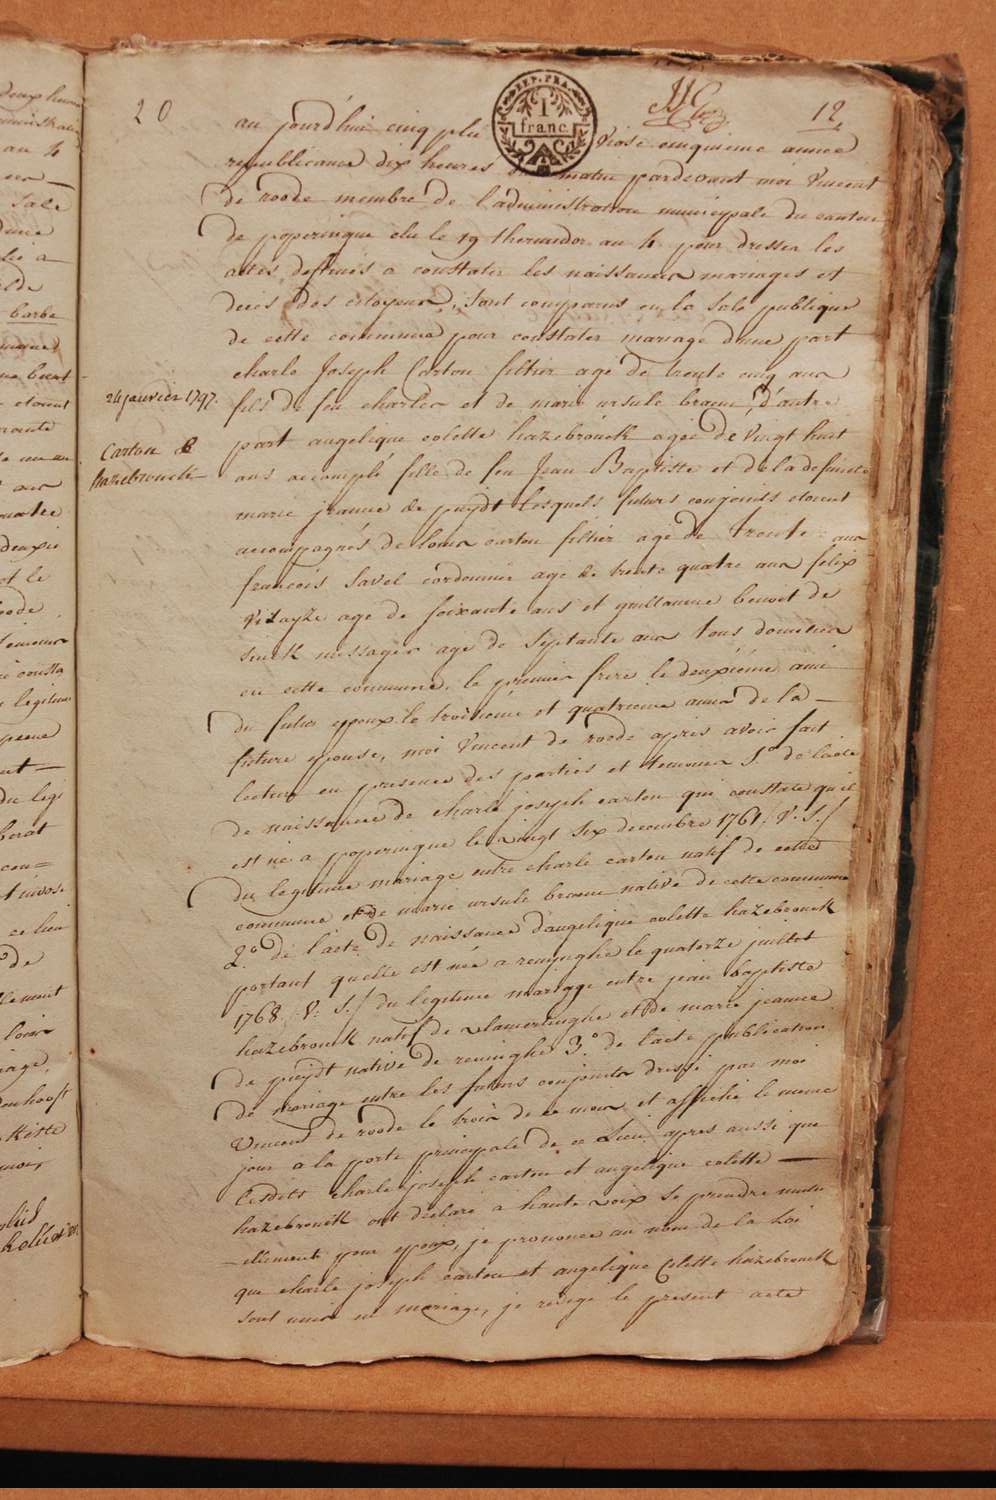 20
REP. FRA.
1
franc
12
au jourd'hui cinq plu viose cinquieme année
republicaine dix heures du matin pardevant moi Vincent
de roode membre de l'administration municipale du canton
de poperingue elu le 19 thermidor an 4 pour dresser les
actes destinés a constater les naissances mariages et
deces des citoyens, sont comparus en la sale publique
de cette commune pour constater mariage d'une part
charle Joseph Carton filtier agé de trente cinq ans
fils de feu charles et de marie ursule braem, d'autre
part angelique colette hazebrouck agee de vingt huit
ans accomplé fille de feu Jean Baptiste et de la defuncte
marie jeanne de puydt lesquels futurs conjoints etoient
accompagnés de louis carton filtier agé de trente ans
francois Savel cordonnier age de trente quatre ans felix
age de soixante ans et guillaume benoit de
messager age de septante ans tous domiciliés
en cette commune, le premier frere le deuxiéme ami
du futur epoux le troisieme et quatrieme amis de la
future epouse, moi Vincent de roode apres avoir fait
lecture en presence des parties et temoins 1.° de l'acte
de naissance de charle joseph carton qui constate qu'il
est né a poperingue le vingt six decembre 1761 /: V. S./
du legitime mariage entre charle carton natif de cette
commune et de marie ursule braem native de cette commune
2.° de l'acte de naissance d'angelique colette hazebrouck
portant quelle est née a reninghe le quatorze juillet
1768 /: V: S./ du legitime mariage entre jean baptiste
hazebrouck natif de vlamertinghe et de marie jeanne
de puydt native de reninghe 3.° de l'acte publication
de mariage entre les futurs conjoints dressé par moi
Vincent de roode le trois de ce mois et affiché le meme
jour a la porte principale de ce Lieu, apres aussi que
lesdits charle joseph carton et angelique colette
hazebrouck ont declaré a haute voix se prendre mutu
ellement pour epoux, je prononce au nom de la Loi
que charle joseph carton et angelique Colette hazebrouck
sont unis en mariage, je redige le present acte
24 janvier 1797.
Carton &
hazebrouck